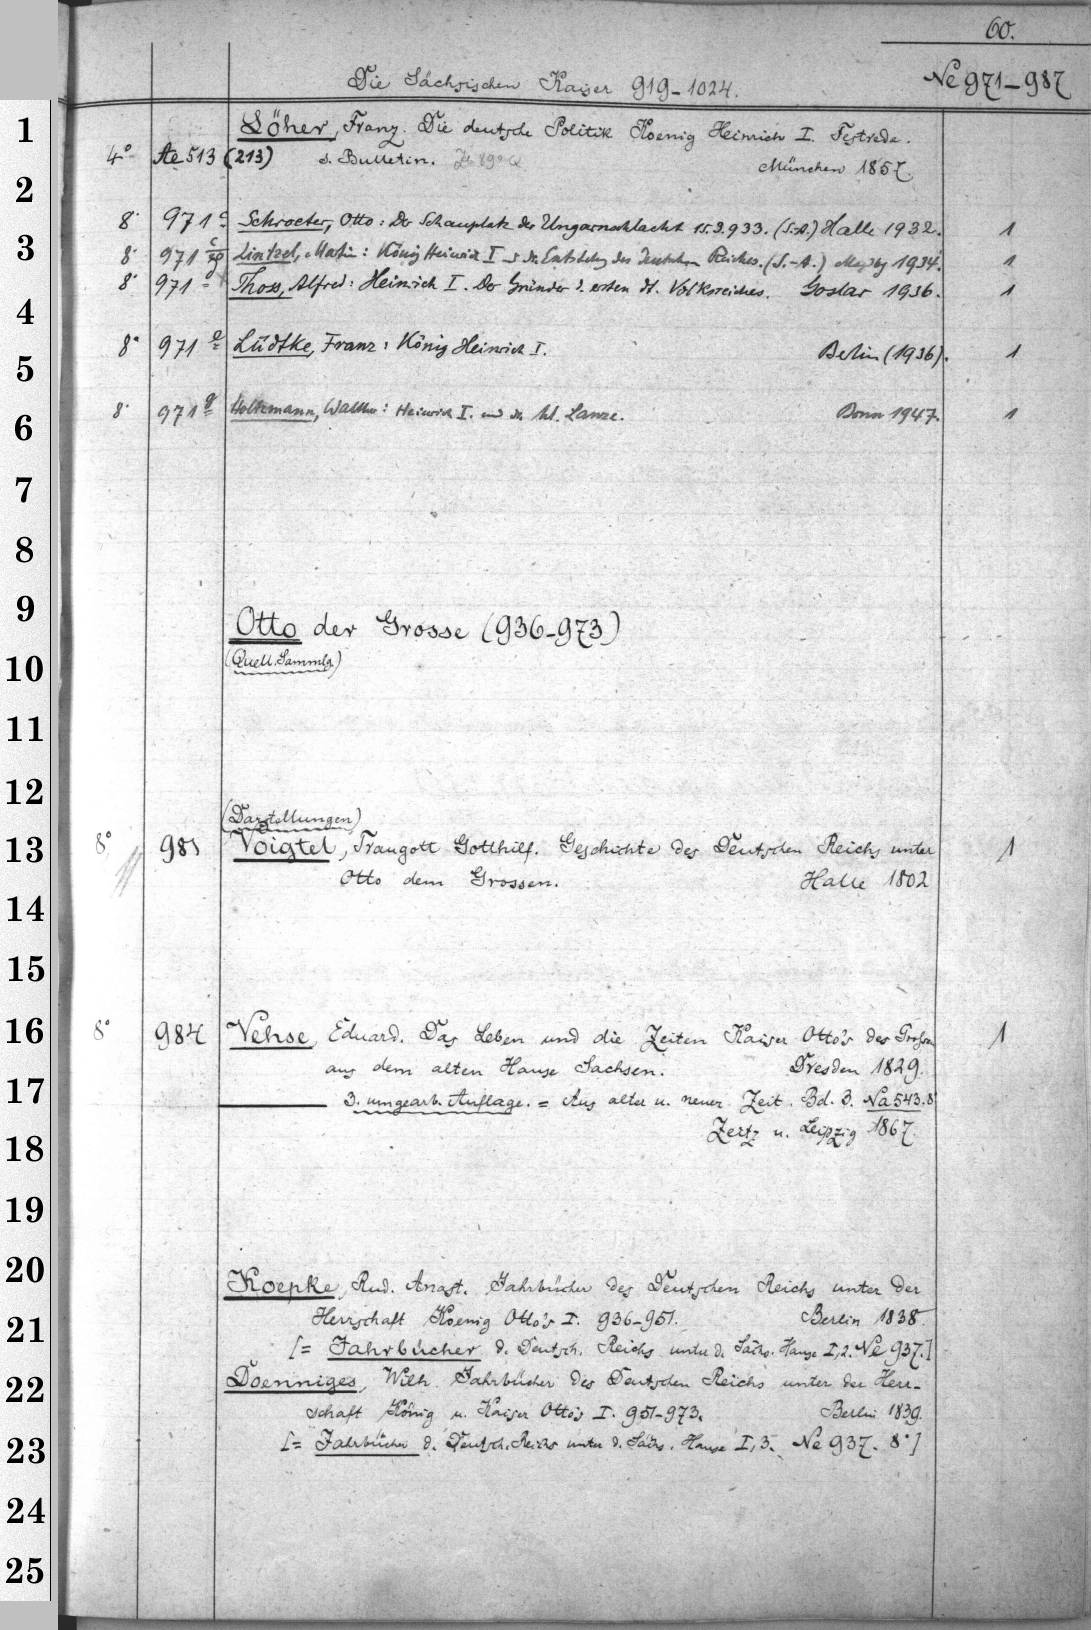 60.
Die Sächsischen Kaiser 919-1024. Ne 971-987
1 Löher, Franz. Die deutsche Politik Koenig Heinrich I. Festrede.
4° Ae 513 (213) s. Bulletin. München 1857.
2
8° 971 c Schroeter, Otto: Der Schauplatz der Ungarnschlacht 15.3.933. (S.A.) Halle 1932. 1
3
8° 971 Lintzel, Martin: König Heinrich I u. die Entstehg des deutschen Reiches. (S.-A.) Magdbg 1934. 1
8° 971 Thoss, Alfred: Heinrich I. Der Gründer d. ersten dt. Volksreiches. Goslar 1936. 1
4
8° 971 e Lüdtke, Franz: König Heinrich I. Berlin (1936). 1
5
8° 971 g Holtzmann, Walther: Heinrich I. und die hl. Lanze. Bonn 1947. 1
6
7
8
9
Otto der Grosse (936-973)
10 (Quell. Sammlg.)
11
12
(Darstellungen)
8° 13 981 Voigtel, Traugott Gotthilf. Geschichte des Deutschen Reichs unter 1
Otto dem Grossen. Halle 1802
14
15
16 8° 984 Vehse, Eduard. Das Leben und die Zeiten Kaiser Otto's des Großen 1
aus dem alten Hause Sachsen. Dresden 1829.
17 3. umgearb. Auflage. = Aus alter u. neuer Zeit. Bd. 3. Na 543. 8°
Zeitz u. Leipzig 1867.
18
19
20
Koepke, Rud. Anast. Jahrbücher des Deutschen Reichs unter der
21 Herrschaft Koenig Otto's I. 936-951. Berlin 1838.
[= Jahrbücher d. Deutsch. Reichs unter d. Sächs. Hause I, 2. Ne 937.]
22 Doenniges, Wilh. Jahrbücher des Deutschen Reichs unter der Herr-
schaft König u. Kaiser Otto's I. 951-973. Berlin 1839.
23 [= Jahrbücher d. Deutsch. Reichs unter d. Sächs. Hause I, 3. Ne 937. 8°]
24
25